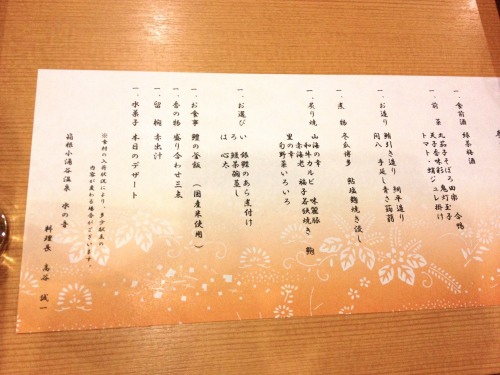 一、食前酒 緑茶梅酒
一、前菜 丸茄子そぼろ田楽 合鴨
天子香味彩 鬼灯玉子
トマト 鱧ジュレ掛け
一、お造り 鮪引き造り 細平造り
間八 手延し青さ蒟蒻
一、煮物 冬瓜博多 鮎塩麹焼き浸し
一、炙り焼 山海の幸
和牛カルビ 味麗豚
赤海老 福子若狭焼き 鮑
里の幸
旬野菜いろいろ
一、お選び い 銀鱈のあら煮付け
ろ 鰻茶碗蒸し
は 心太
一、お食事 鱧の釜飯 （国産米使用）
一、香の物 盛り合わせ三点
一、留椀 赤出汁
一、水菓子 本日のデザート
※食材の入荷状況により、多少献立の
内容が変わる場合がございます。
箱根小涌谷温泉 水の音
料理長 高谷 誠一